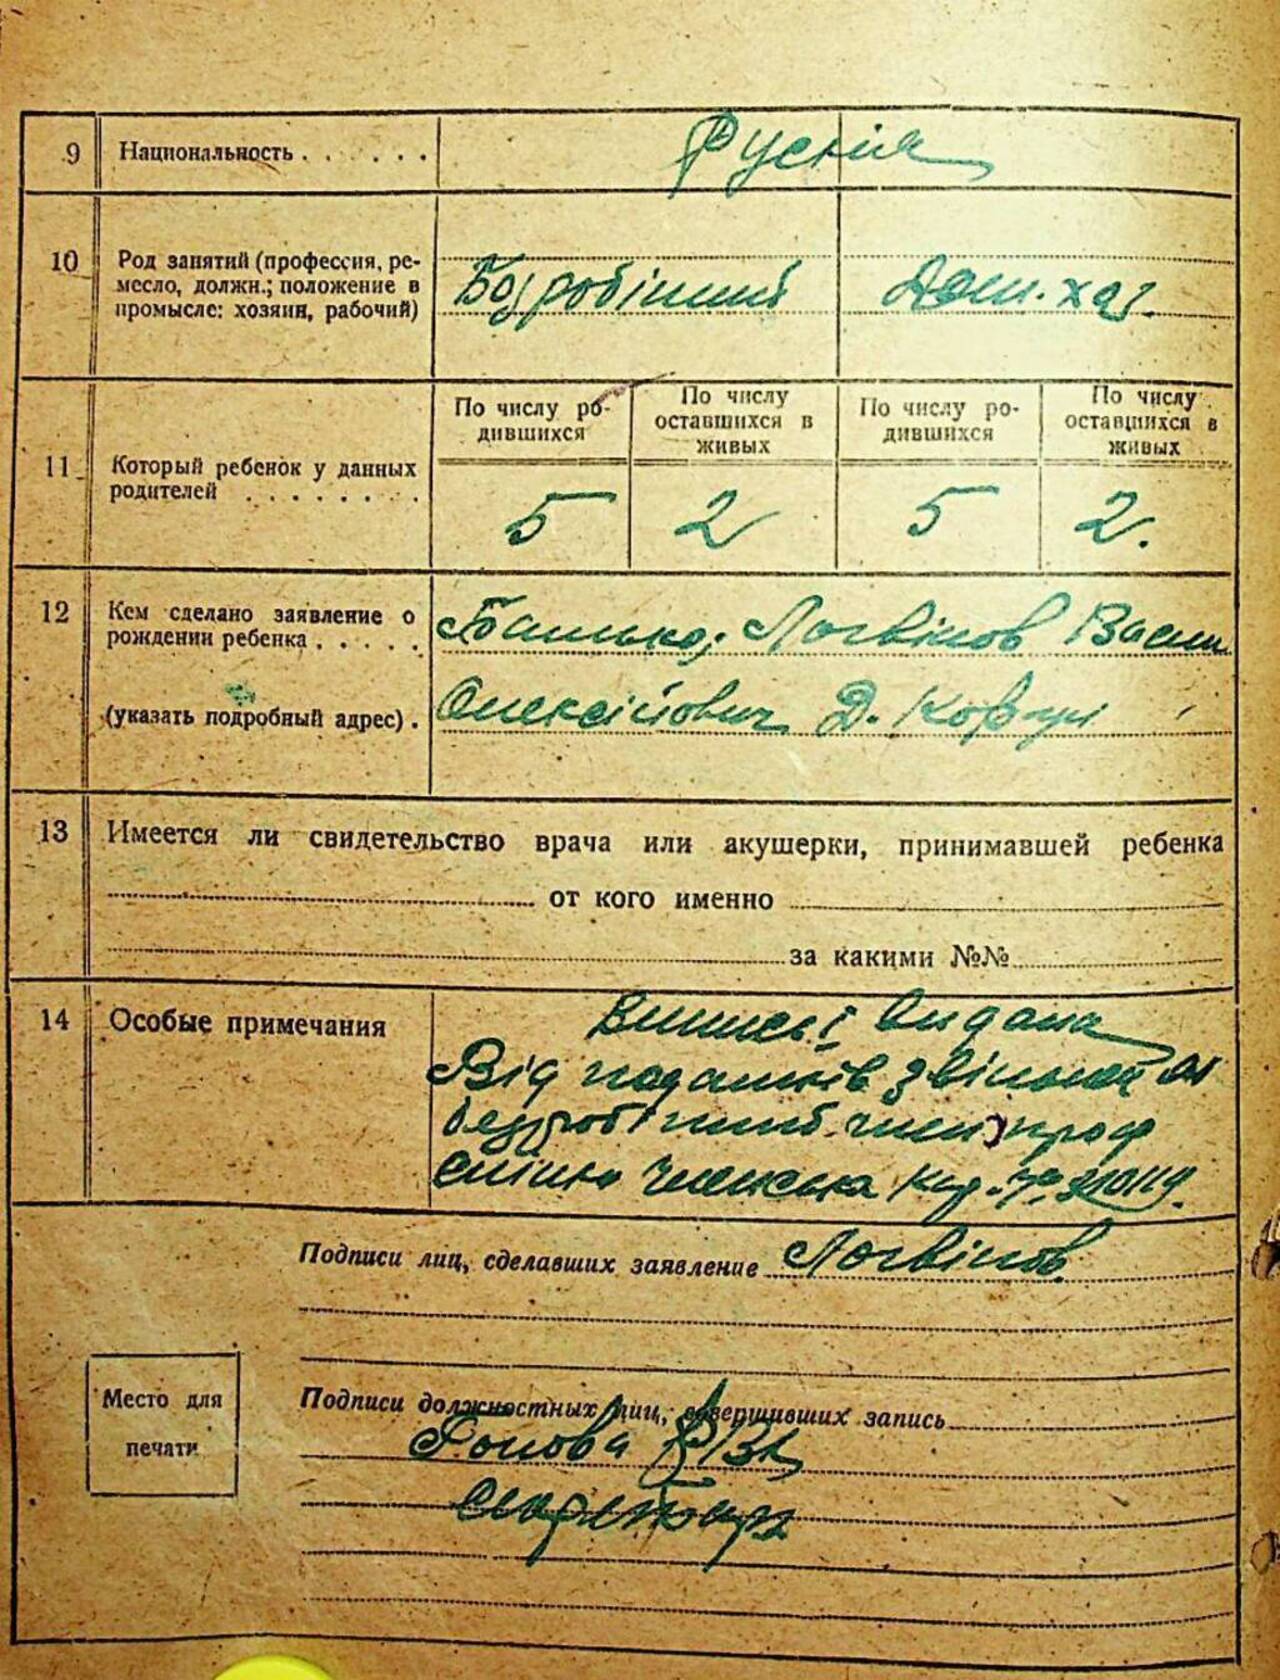 9 Национальность . . . . . . Руснія
10 Род занятий (профессия, ре-
месло, должн.; положение в
промысле: хозяин, рабочий)
Безробітний Дом. хаз.
По числу ро-
дившихся
По числу
оставшихся в
живых
По числу ро-
дившихся
По числу
оставшихся в
живых
11 Который ребенок у данных
родителей . . . . . . . .
5 2 5 2.
12 Кем сделано заявление о
рождении ребенка . . . . .
Батько, Логвінов Васил
(указать подробный адрес) . Олексійович Д.
13 Имеется ли свидетельство врача или акушерки, принимавшей ребенка
от кого именно
за какими №№
14 Особые примечания Випись видана
Від податків звільнен
безробітний член проф
спілки Членська
Подписи лиц, сделавших заявление Логвінов
Место для
печати
Подписи должностных лиц, совершивших запись
Голова
Секретарь